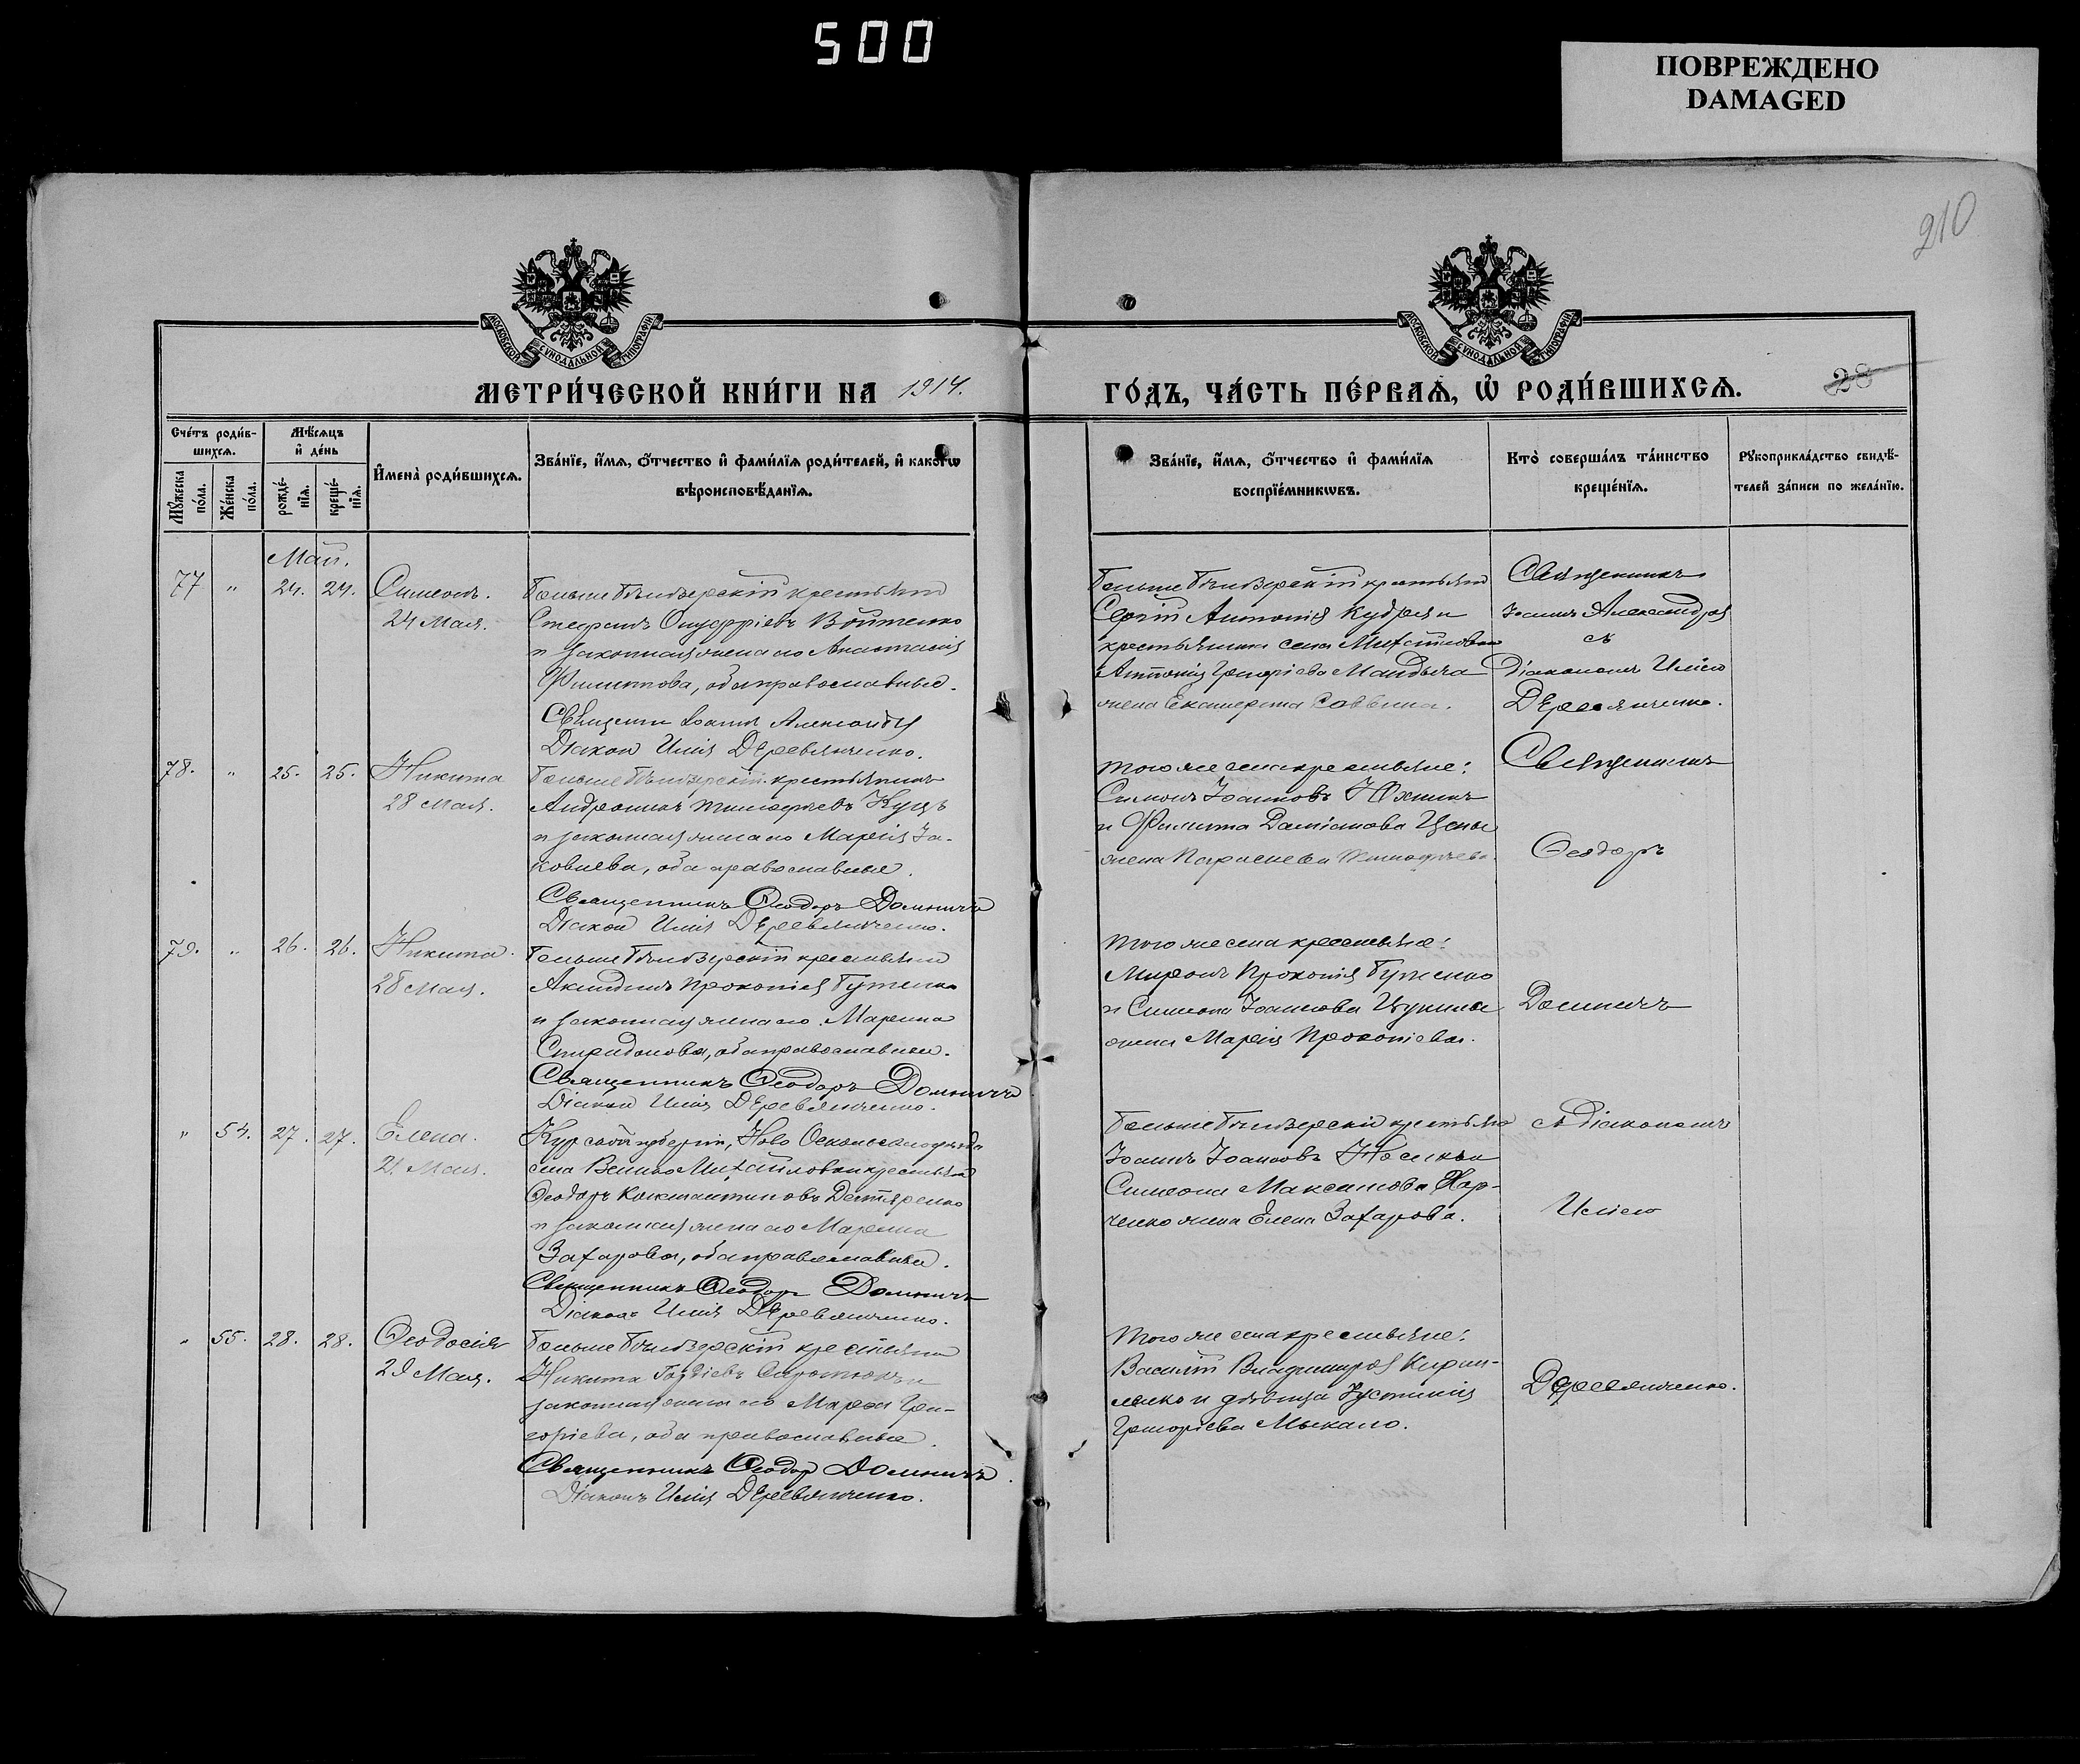 500
ПОВРЕЖДЕНО
DAMAGED
210
МОСКОВСКОЙ СѴНОДАЛЬНОЙ ТИПОГРАФІИ
МОСКОВСКОЙ СѴНОДАЛЬНОЙ ТИПОГРАФІИ
МЕТРИ́ЧЕСКОЙ КНИ́ГИ НА 1914.
ГО́ДЪ, ЧА́СТЬ ПЕ́РВАѦ, Ѡ РОДИ́ВШИХСѦ.
28
Сче́тъ роди́в-
шихсѧ.
Мѣ́сѧцъ
и҆ де́нь
Мꙋ́жеска по́ла.
Же́нска по́ла.
рожде́-
нїѧ.
креще́-
нїѧ.
И҆мена̀ роди́вшихсѧ.
Зва́нїе, и҆́мѧ, ѻ҆́тчество и҆ фами́лїѧ роди́телей, и҆ како́гѡ
вѣроисповѣ́данїѧ.
Зва́нїе, и҆́мѧ, ѻ҆́тчество и҆ фами́лїѧ
воспрїе́мникѡвъ.
Кто̀ соверша́лъ та́инство
креще́нїѧ.
Рꙋкоприкла́дство свидѣ́-
телей за́писи по жела́нїю.
Май.
77 " 24. 24. Симеонъ.
24 Мая.
крестьянинъ
Стефанъ Онуфріевъ Войтенко
и законная жена его Анастасія
Филиппова, оба православные.
Священн Іоаннъ Александр
Діакон Илія Деревянченко.
крестьян
Сергій Антоніев Кудря и
крестьянина села Михайловки
Антонія Григоріева Мандыча
жена Екатерина Саввина.
Священникъ
Іоаннъ Александров
съ
Діакономъ Иліею
Деревянченко.
78. " 25. 25. Никита
28 Мая.
крестьянинъ
Андроникъ Тимофеевъ Куцъ
и законная жена его Марія Іа-
ковлева, оба православные.
Священникъ Ѳеодоръ Доминичъ
Діакон Илія Деревянченко.
того же села крестьяне:
Симонъ Іоанновъ Юхникъ
и Филиппа Даміанова
жена Параскева Тимофеева.
Священникъ
Ѳеодоръ
79. " 26. 26. Никита.
28 Мая.
крестьянин
Акиндинъ Прокопіев Бутенко
и законная жена его Марина
Спиридонова, оба православные.
Священникъ Ѳеодоръ Доминичъ
Діакон Илія Деревянченко.
того же села крестьяне:
Миронъ Прокопіев Бутенко
и Симеона Іоаннова
жена Марія Прокопіева.
Доминичъ
" 54. 27. 27. Елена.
21 Мая.
Курской губерніи, Ново Оскольскаго уезда
села Велико Михайловки крестьянин
Ѳеодоръ Константиновъ Дегтяренко
и законная жена его Марина
Захарова, оба православные.
Священникъ Ѳеодоръ Доминичъ
Діаконъ Илія Деревянченко.
Іоаннъ Іоанновъ Носик и
Симеона Максимова Хар-
ченко жена Елена Захарова.
съ Діакономъ
Иліею
" 55. 28. 28. Ѳеодосія
29 Мая.
крестьянин
Никита Гордіевъ Сиротюкъ и
законная жена его Марѳа Гри-
горіева, оба православные.
Священникъ Ѳеодор Доминичъ.
Діаконъ Илія Деревянченко.
того же села крестьяне:
Василій Владиміров Кирил-
ленко и девица Іустинія
Григоріева Мыкало.
Деревянченко.